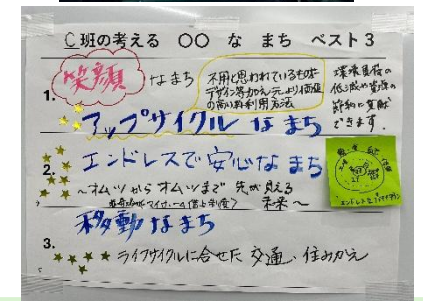 C班の考える 〇〇 な まち ベスト3
1.
笑顔 なまち
不用と思われているものを
デザイン等加え元より価値
の高い再利用方法
環境負荷の
低減や資源の
節約に貢献
できます。
アップサイクル なまち
2. エンドレスで安心な まち
〜オムツからオムツまで 先が見える
未来〜
エンドレス
移動なまち
3.
ライフサイクルに合せた 交通、住みかえ